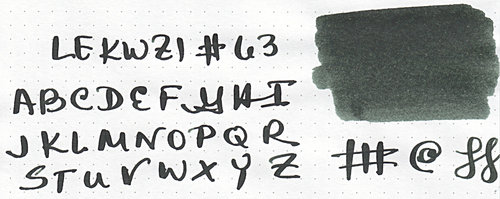 LEKWZI #63
ABCDEFGHI
JKLMNOPQR
STUVWXYZ
# @